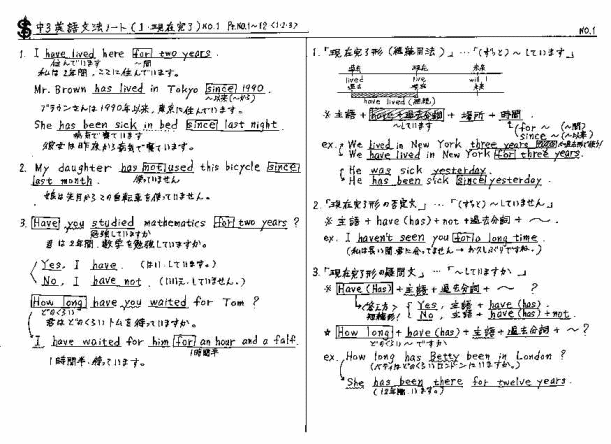 中3英語文法ノート(1.現在完了) NO.1 Pt.NO.1~12 <1・2・3>
NO.1
1. I have lived here for two years.
私は2年間、ここに住んでいます。
Mr. Brown has lived in Tokyo since 1990.
~以来(~から)
ブラウンさんは1990年以来、東京に住んでいます。
She has been sick in bed since last night.
病気で寝ています
彼女は昨夜から病気で寝ています。
2. My daughter has not used this bicycle since
last month. 使っていません
娘は先月からこの自転車を使っていません。
3. Have you studied mathematics for two years?
勉強していますか
君は2年間、数学を勉強していますか。
Yes, I have. (はい、しています。)
No, I have not. (いいえ、していません。)
How long have you waited for Tom?
どのくらい
君はどのくらいトムを待っていますか。
I have waited for him for an hour and a falf.
1時間半
1時間半、待っています。
1.「現在完了形(継続用法)」…「(ずっと)~しています。」
過去 現在 未来
lived live will l
過去 現在 未来
have lived (継続)
※ 主語 + have + 過去分詞 + 場所 + 時間
~しています
for ~ (~間)
since ~ (~以来)
ex. We lived in New York three years
We have lived in New York for three years.
He was sick yesterday.
He has been sick since yesterday.
2.「現在完了形の否定文」…「(ずっと)~していません」
※ 主語 + have (has) + not + 過去分詞 + ~.
ex. I haven't seen you for a long time.
(私は長い間君に会ってません → お久しぶりですね。)
3.「現在完了形の疑問文」…「~していますか。」
※ Have (Has) + 主語 + 過去分詞 + ~ ?
<答え方> Yes, 主語 + have (has).
短縮形! No, 主語 + have (has) + not.
★ How long + have (has) + 主語 + 過去分詞 + ~ ?
どのくらい~ですか
ex. How long has Betty been in London?
(ベティはどのくらいロンドンにいますか。)
She has been there for twelve years.
(12年間、います。)